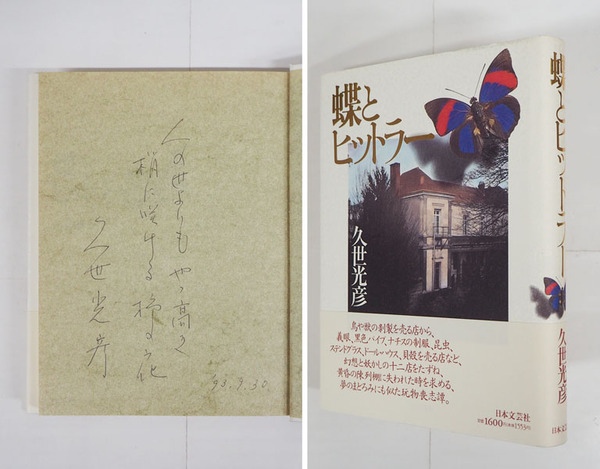 人の世よりもやゝ高く
梢に咲ける 椿の花
久世光彦
'93.9.30
蝶と
ヒットラー
久世光彦
鳥や獣の剥製を売る店から、
義眼、黒色パイプ、ナチスの制服、昆虫、
ステンドグラス、ドールハウス、貝殻を売る店など、
幻想と妖かしの十二店をたずね、
黄昏の陳列棚に失われた時を求める、
夢のまどろみにも似た玩物喪志譚。
日本文芸社
定価1600円(本体1553円)
蝶とヒットラー
久世光彦
日本文芸社